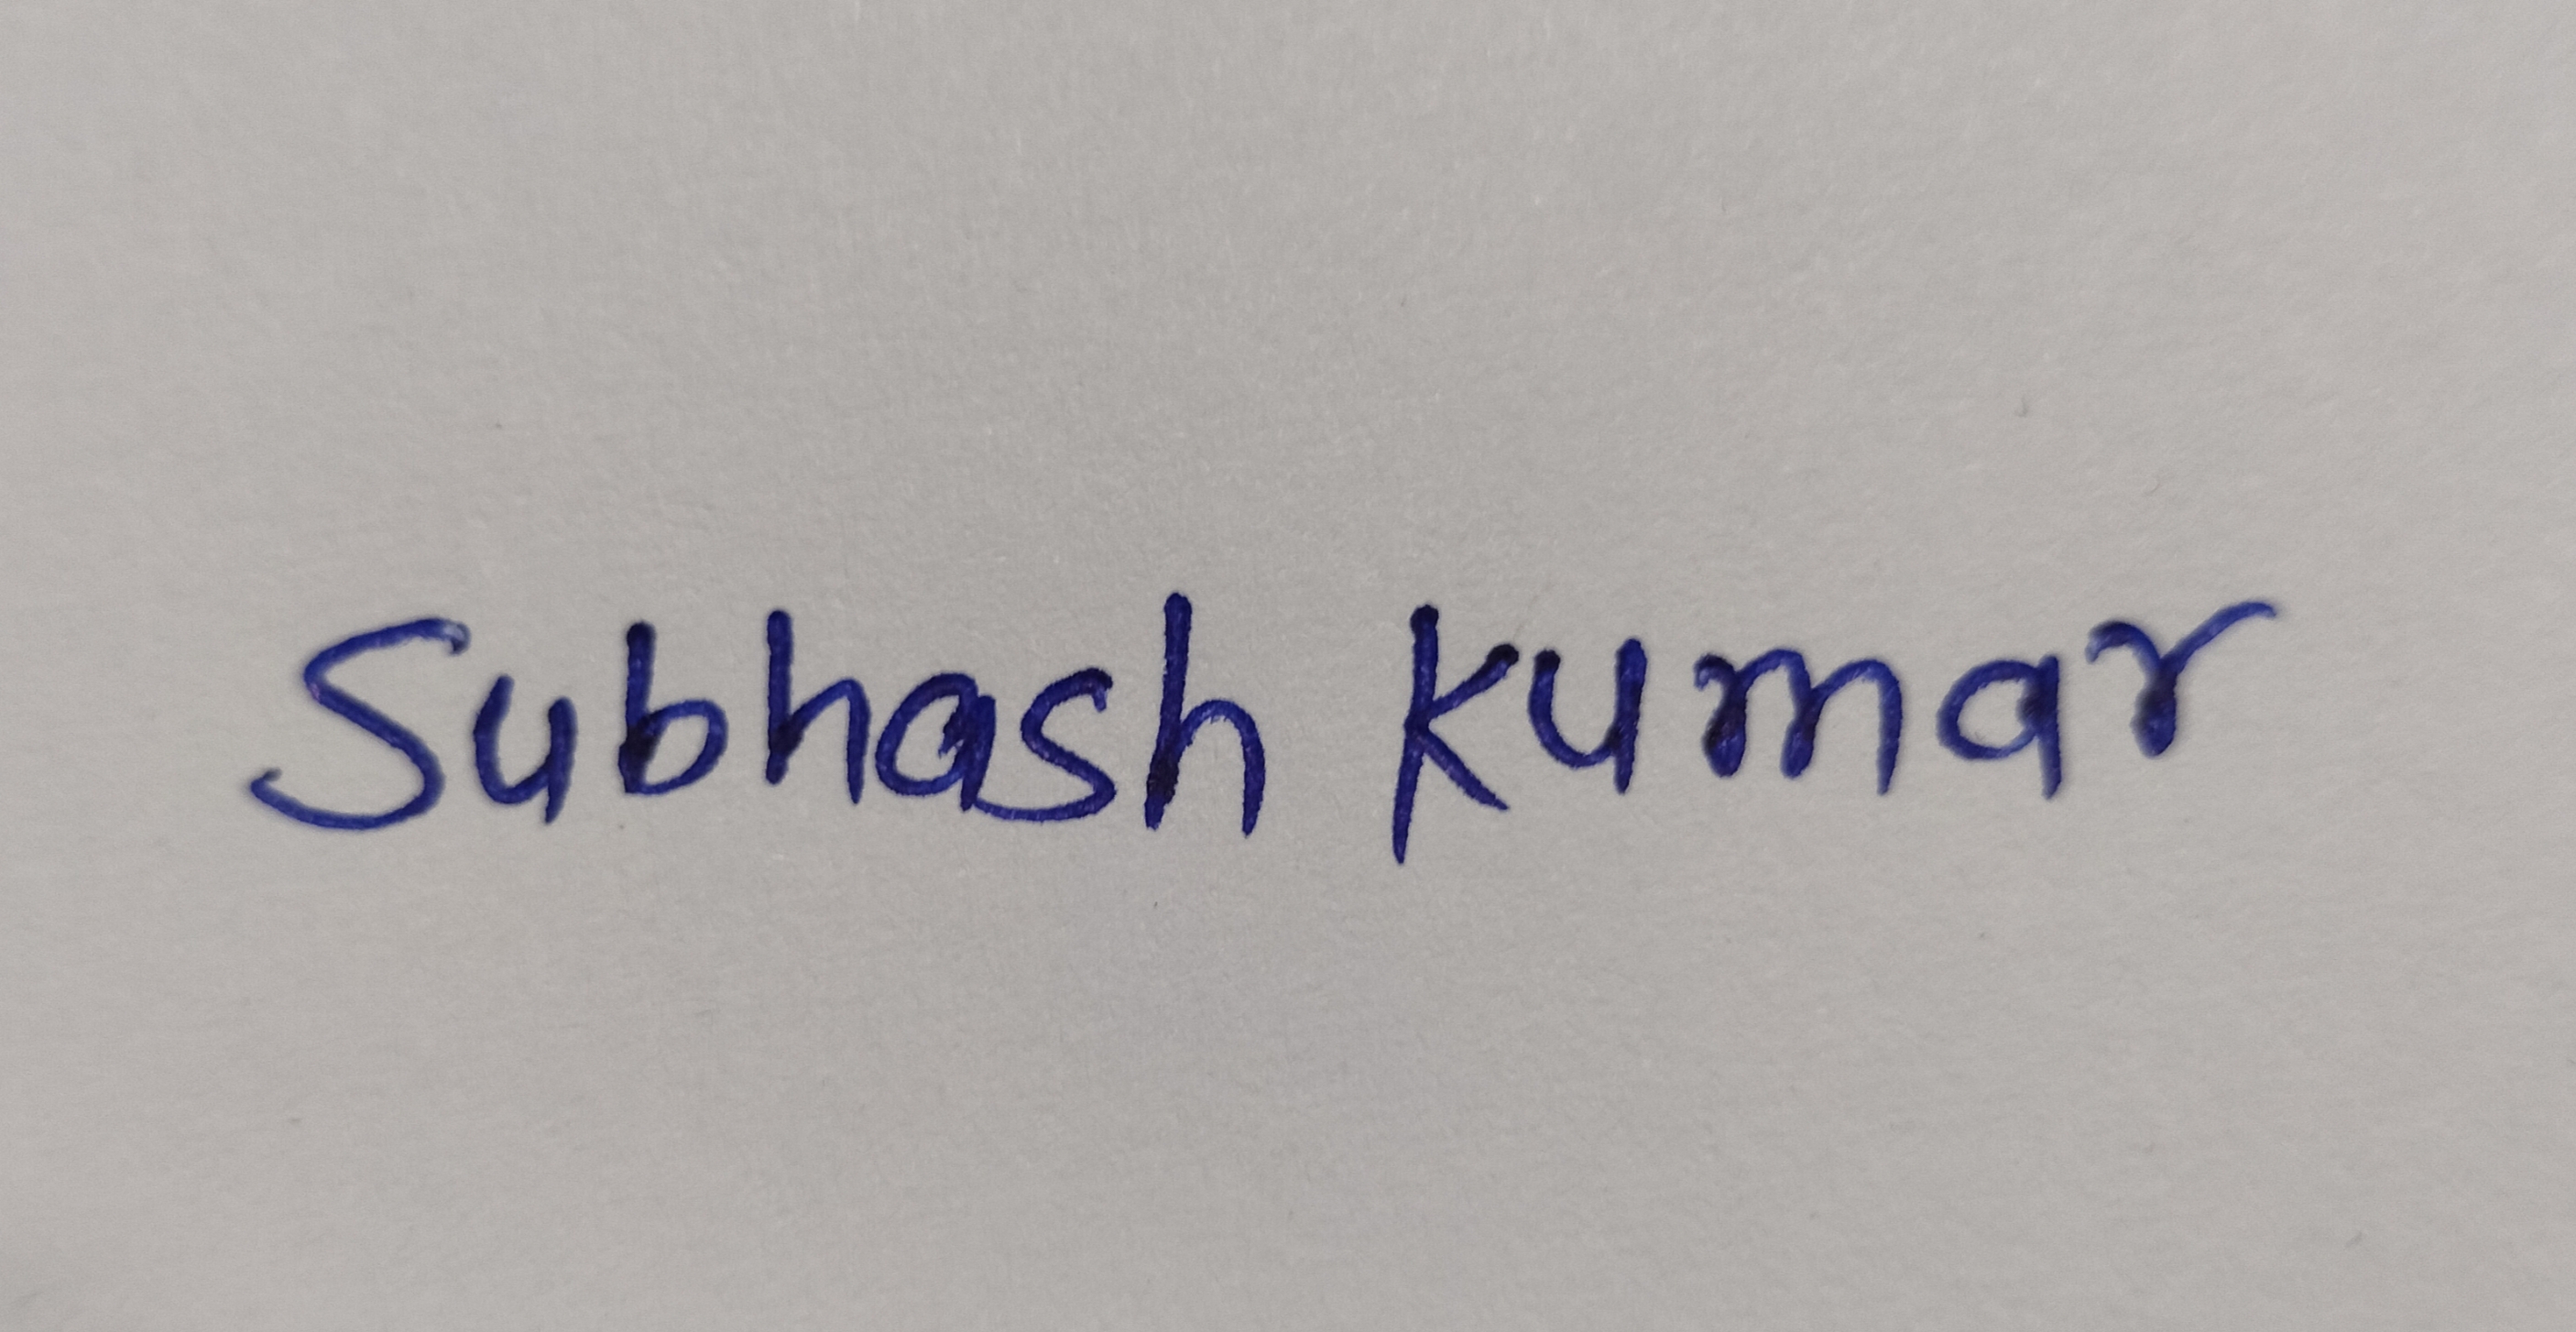 Subhash Kumar